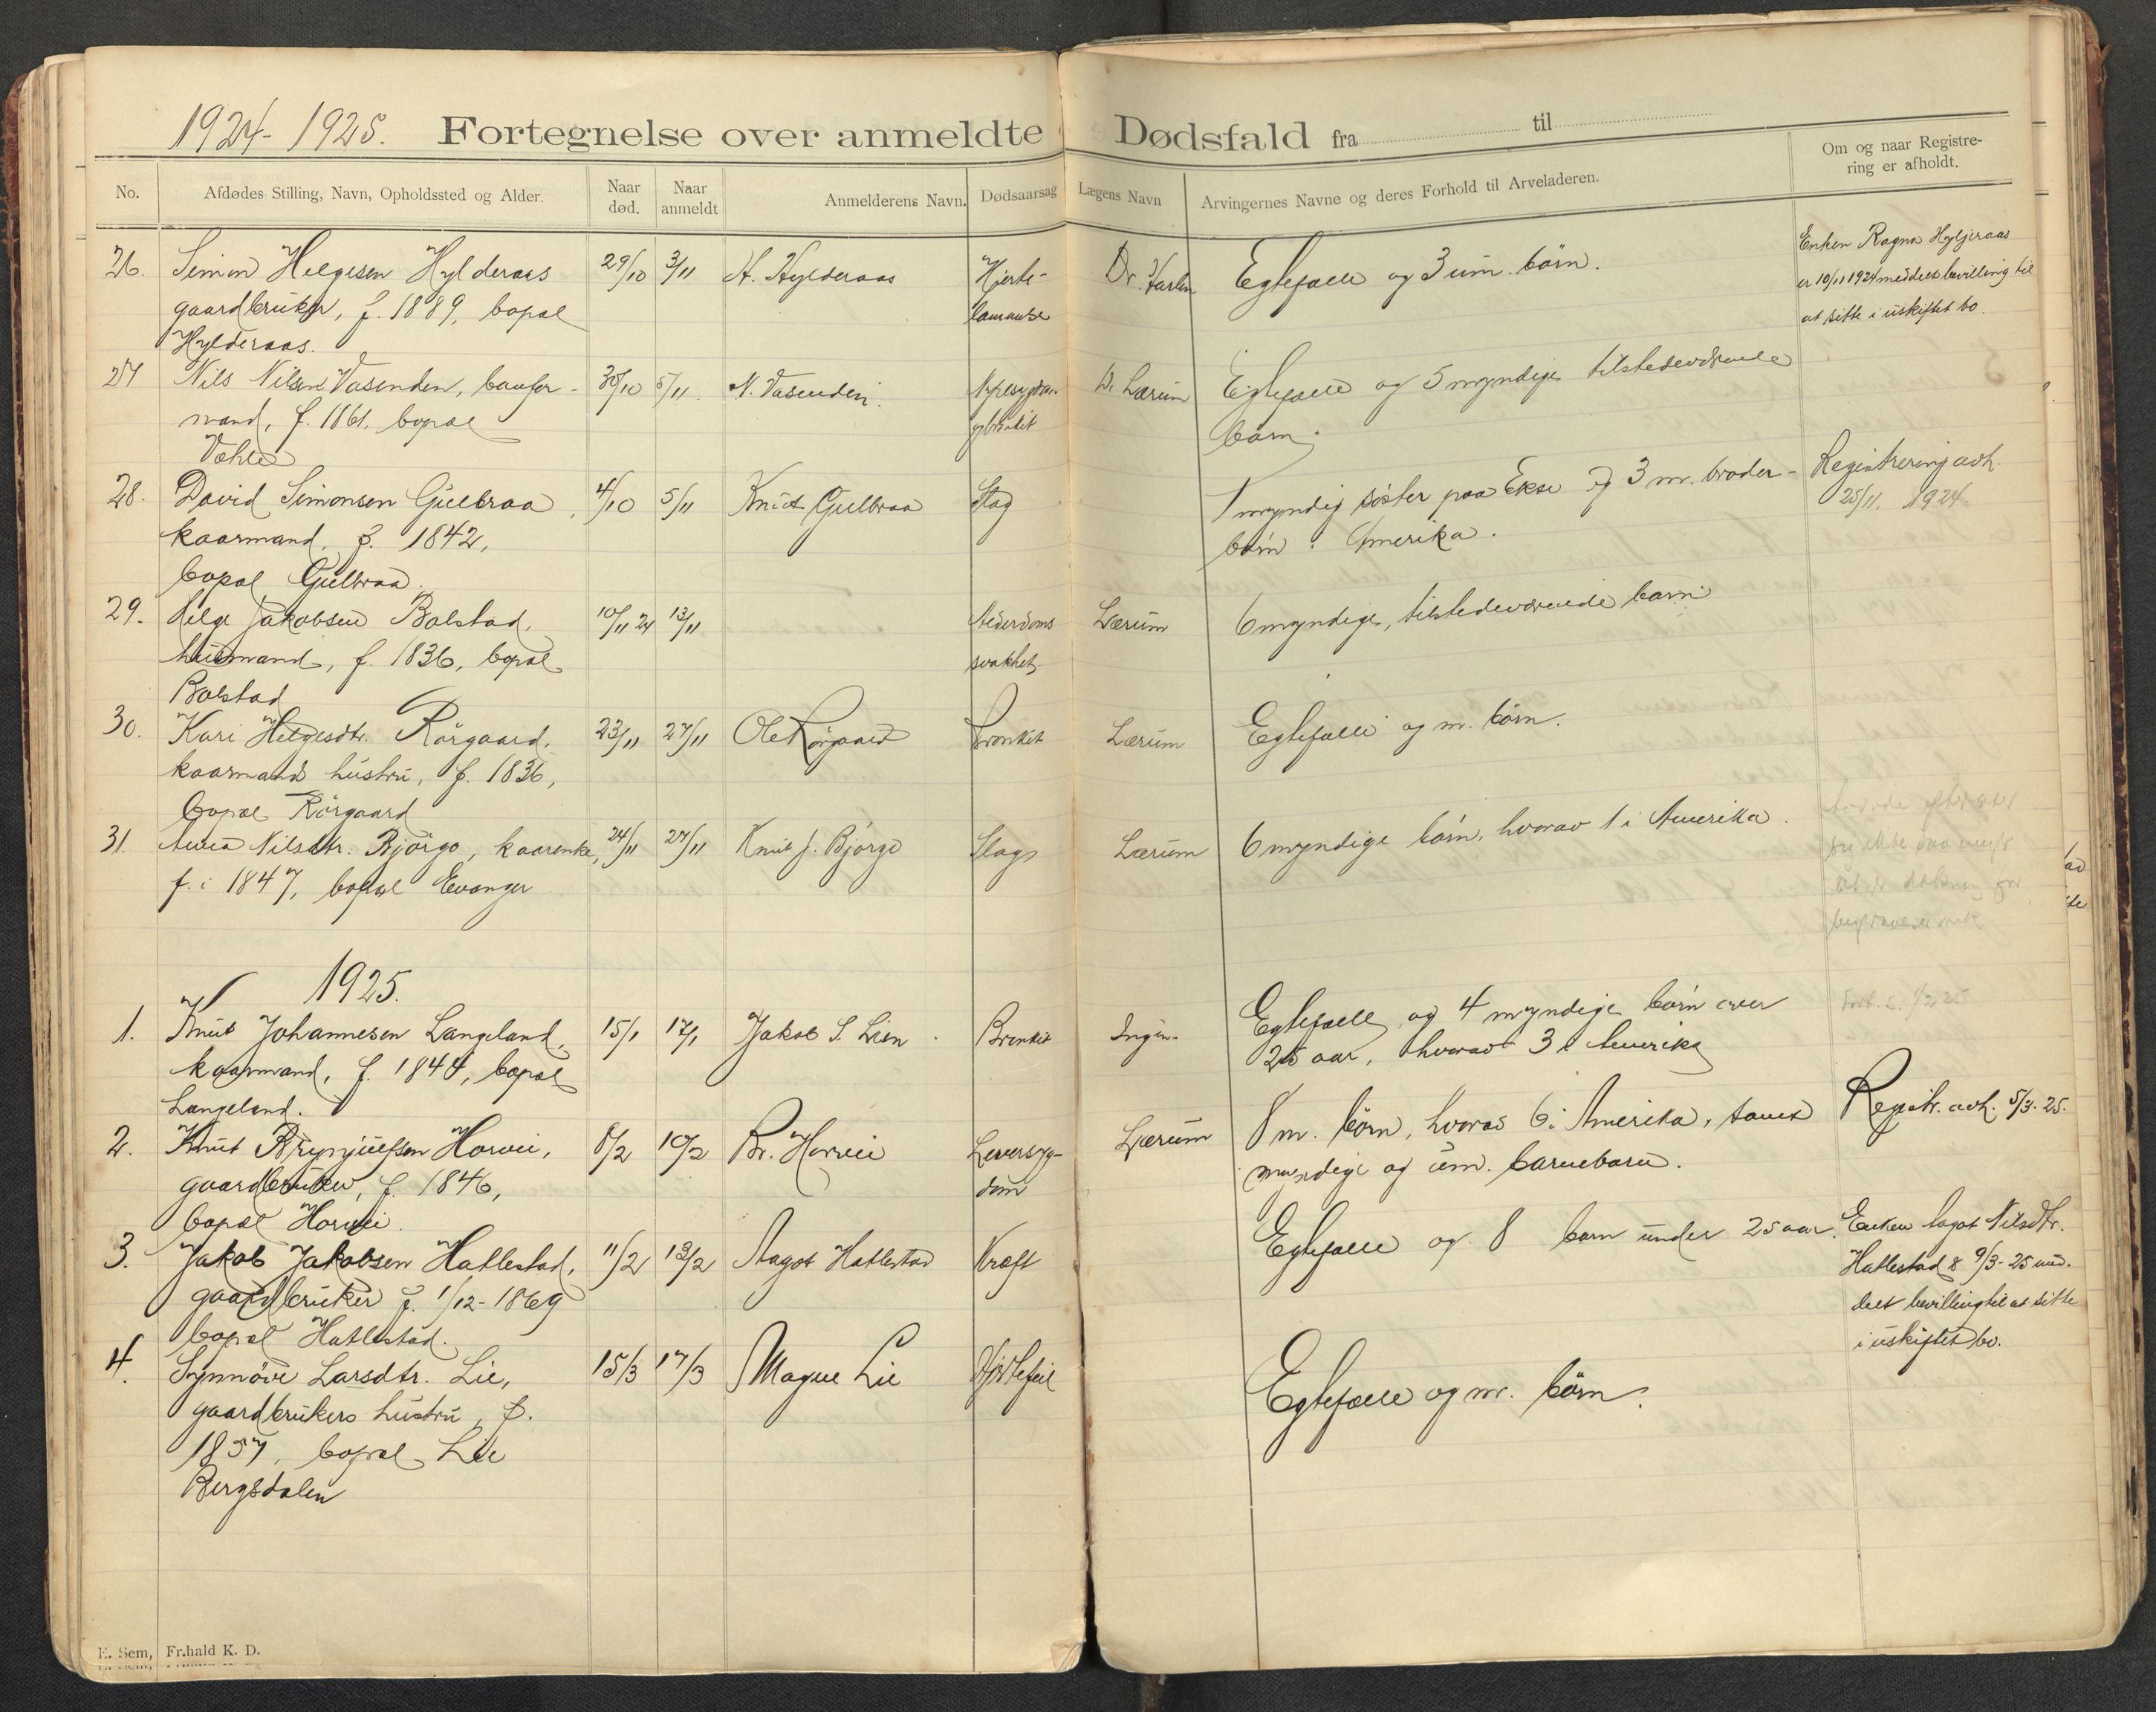 1924-1925. Fortegnelse over anmeldte Dødsfald fra til
No. Afdødes Stilling, Navn, Opholdssted og Alder. Naar død. Naar anmeldt Anmelderens Navn. Dødsaarsag Lægens Navn Arvingernes Navne og deres Forhold til Arveladeren. Om og naar Registrering er afholdt.
26. Simon Helgesen Hylderaas 29/10 3/11 H. Hylderaas Hjerte- Dr. Egtefælle og 3 um. børn. Enken Ragna
gaardbruker, f. 1889, bopæl lammelse er 10/11 1924 meddelt bevilling til
Hylderaas. at sitte i uskiftet bo.
27 Nils Nilsen Vasenden, 30/10 5/11 N. Vasenden Dr. Lærum Egtefælle og 5 myndige tilstedeværende
mand, f. 1861, bopæl børn.
28. David Simonsen Gullbraa, 4/10 5/11 Knut Gullbraa Slag 1 myndig søster paa Ekse og 3 m. broder- Registrering avh.
kaarmand, f. 1842, børn i Amerika. 25/11. 1924
bopæl Gullbraa.
29. Helge Jakobsen Bolstad, 10/11 24 13/11 Alderdoms Lærum 6 myndige, tilstedeværende barn
husmand, f. 1836, bopæl svakhet.
Bolstad
30. Kari Helgesdtr. Rørgaard, 23/11 27/11 Ole Rørgaard Bronkit Lærum Egtefælle og m. børn.
kaarmands hustru, f. 1836,
bopæl Rørgaard
31. Anna Nilsdtr. Bjørgo, kaarenke, 24/11 27/11 Knut J. Bjørgo Slag Lærum 6 myndige børn, hvorav 1 i Amerika.
f. i 1847, bopæl Evanger
1925.
1. Knut Johannesen Langeland, 15/1 17/1 Jakob S. Lien Bronkit Ingen Egtefælle og 4 myndige børn over
kaarmand, f. 1844, bopæl 25 aar, hvorav 3 i Amerika
Langeland.
2. Knut Brynjulfsen Horvei, 8/2 10/2 Br. Horvei Leversyg- Lærum 8 m. børn, hvorav 6 i Amerika, samt Registr. avh. 5/3-25.
gaardbruker, f. 1846, dom myndige og um. barnebarn.
bopæl Horvei.
3. Jakob Jakobsen Hatlestad, 11/2 13/2 Aagot Hatlestad Kræft Egtefælle og 8 barn under 25 aar. Enken Aagot Nilsdtr.
gaardbruker f. 1/12-1869 Hatlestad 9/3-25 med-
bopæl Hatlestad. delt bevilling til at sitte
i uskiftet bo.
4. Synnøve Larsdtr. Lie, 15/3 17/3 Magne Lie Hjertefeil Egtefælle og m. børn.
gaardbrukers hustru, f.
1857, bopæl Lie
Bergsdalen
E. Sem, Fr.hald K. D.